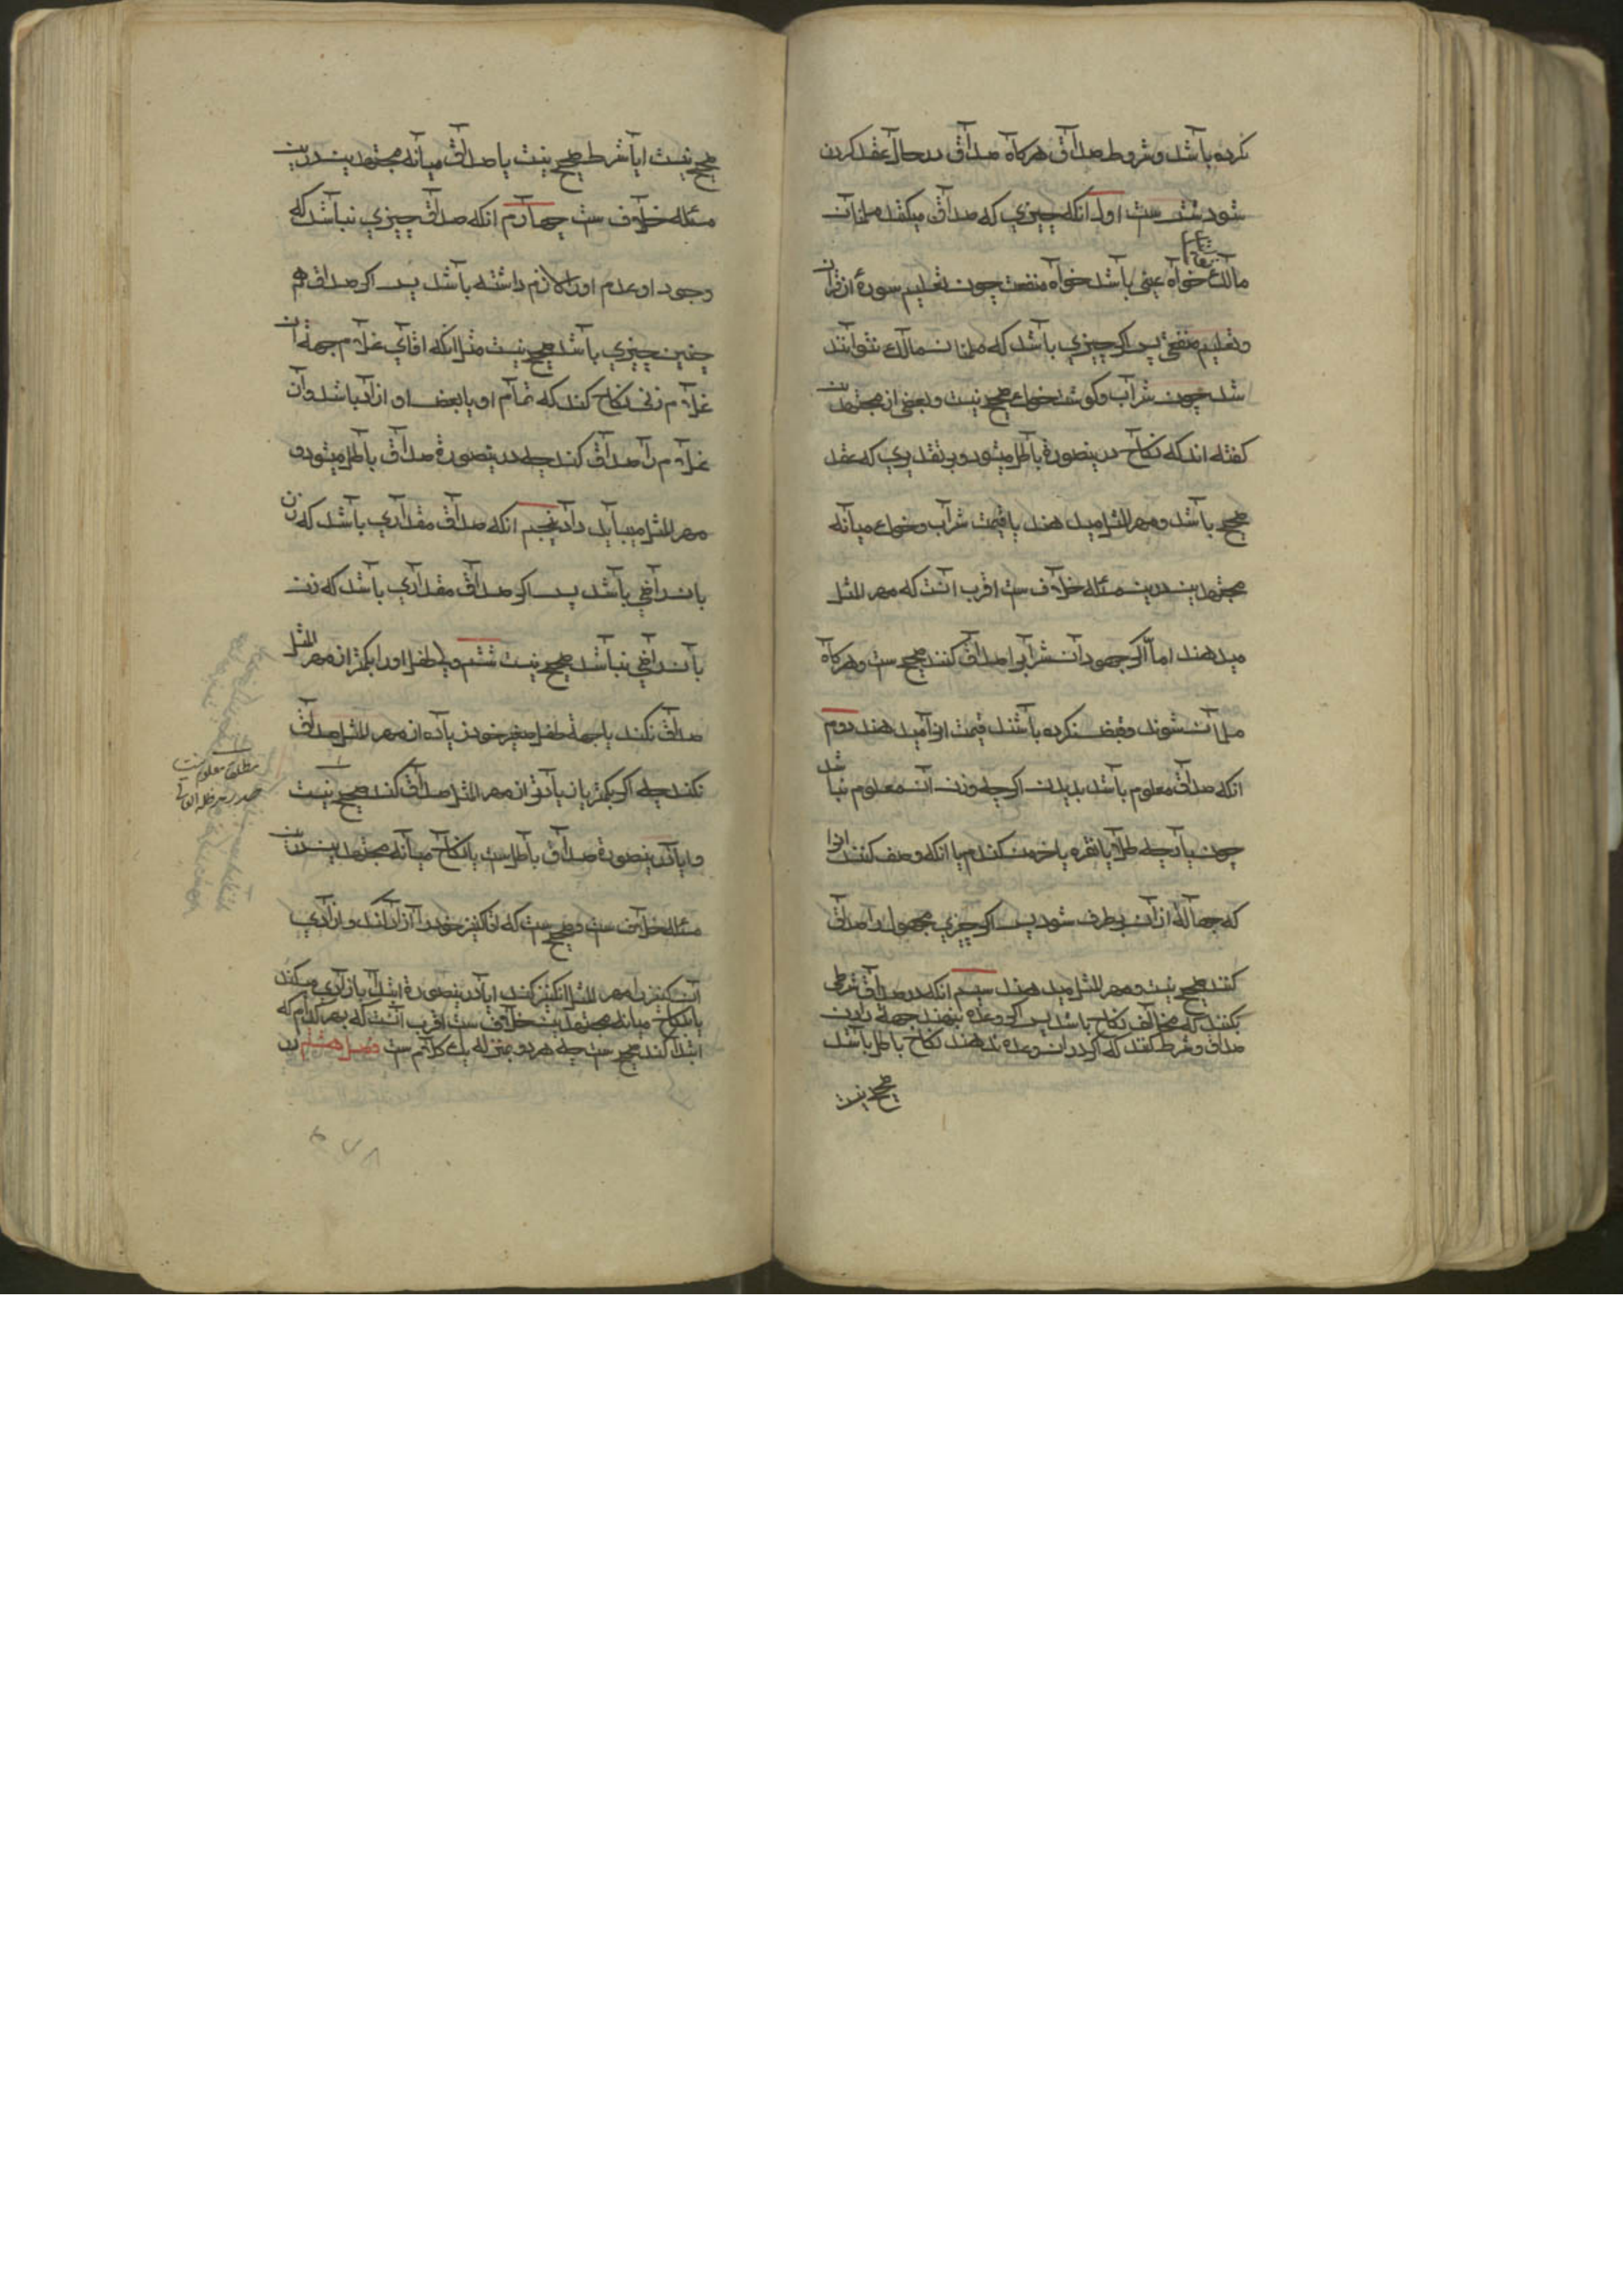 کرده باشد و شروط صداق هرکاه صداق در حال عقد کردن
شود شش ست اول انکه چیزي که صداق میکنند مسلمانان
مالک خواه عینی باشد خواه منفعت چون تعلیم سورهٔ از قران
و تعلیم صنعتی پس اکر چیزي باشد که مسلمانان مالک نتوانند
شد چون شراب و کوشت خوک صحیح نیست و بعضی از مجتهدین
کفته اند که نکاح درینصورة باطل میشود و بر تقدیري که عقد
صحیح باشد و مهر المثل میدهند یا قیمت شراب و خوک میانه
مجتهدین درین مسئله خلاف ست اقرب انست که مهر المثل
میدهند اما اکر جهودان شراب را صداق کنند صحیح ست و هرکاه
مسلمان شوند و قبض نکرده باشند قیمت انرا میدهند دوم
انکه صداق معلوم باشد بدیدن اکر چه وزن آن معلوم نباشد
چون پارچه طلا یا نقره یا خرمن کندم یا انکه وصف کنند انرا
که جهالة ازان برطرف شود پس اکر چیزي مجهول را صداق
کنند صحیح نیست و مهر المثل میدهند سیم انکه در صداق شرطی
نکنند که مخالف نکاح باشد پس اکر وعده بنهند جهة دادن
صداق و شرط کنند که اکر دران وعده ندهند نکاح باطل باشد
صحیح نیست
صحیح نیست ایا شرط صحیح نیست یا صداق میانه مجتهدین درین
مسئله خلاف ست چهارم انکه صداق چیزي نباشد که
وجود او عدم اورا لازم داشته باشد پس اکر صداق هم
چنین چیزي باشد صحیح نیست مثل انکه اقاي غلام جهة ان
غلام زنی نکاح کند که تمام او یا بعض او ازاد باشد و ان
غلام را صداق کند چه درینصورة صداق باطل میشود و
مهر المثل میباید داد پنجم انکه صداق مقداري باشد که زن
بان راضی باشد پس اکر صداق مقداري باشد که زن
بان راضی نباشد صحیح نیست ششم ولی طفل اورا بکمتر از مهر المثل
صداق نکند یا جهة طفل صغیر خود زیاده از مهر المثل صداق
نکند چه اکر بکمتر یا زیادتر از مهر المثل صداق کند صحیح نیست
و ایا درینصورة صداق باطل ست یا نکاح میانه مجتهدین درین
مسئله خلاف ست و صحیح ست که اقا کنیز خود را ازاد کند و ازادي
آن کنیز را مهر المثل ان کنیز کند ایا درینصورة ابتدا بازادي میکند
یا بنکاح میانه مجتهدین خلاف ست اقرب انست که بهر کدام که
ابتدا کند صحیح ست چه هر دو بمنزله یک کلام ست فصل هشتم در